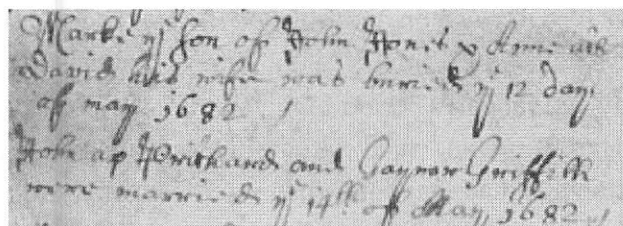 Marke ye son of John Jones & Anne
David his wife was buried ye 12 day
of may 1682
John ap Prithard and Gaynor Griffith
were married ye 14th of May 1682